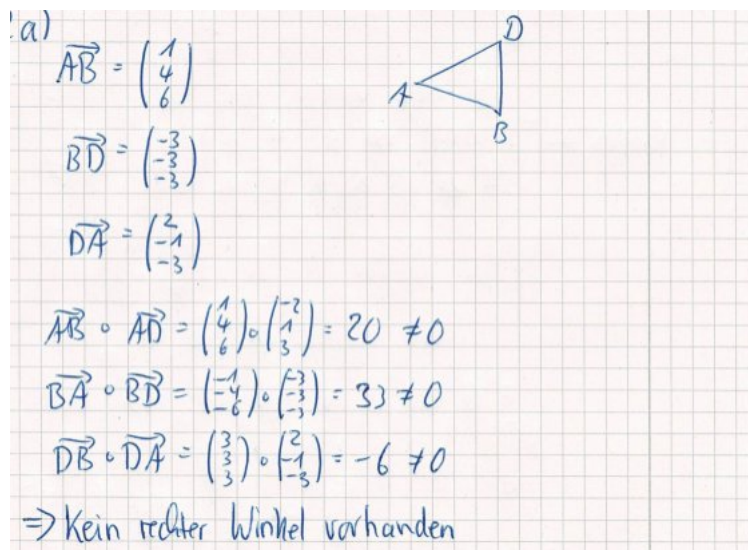 a)
AB→ = (1 4 6)
D
A
B
BD→ = (-3 -3 -3)
DA→ = (2 -1 -3)
AB→ ∘ AD→ = (1 4 6) ∘ (-2 1 3) = 20 ≠ 0
BA→ ∘ BD→ = (-1 -4 -6) ∘ (-3 -3 -3) = 33 ≠ 0
DB→ ∘ DA→ = (3 3 3) ∘ (2 -1 -3) = -6 ≠ 0
⇒ Kein rechter Winkel vorhanden